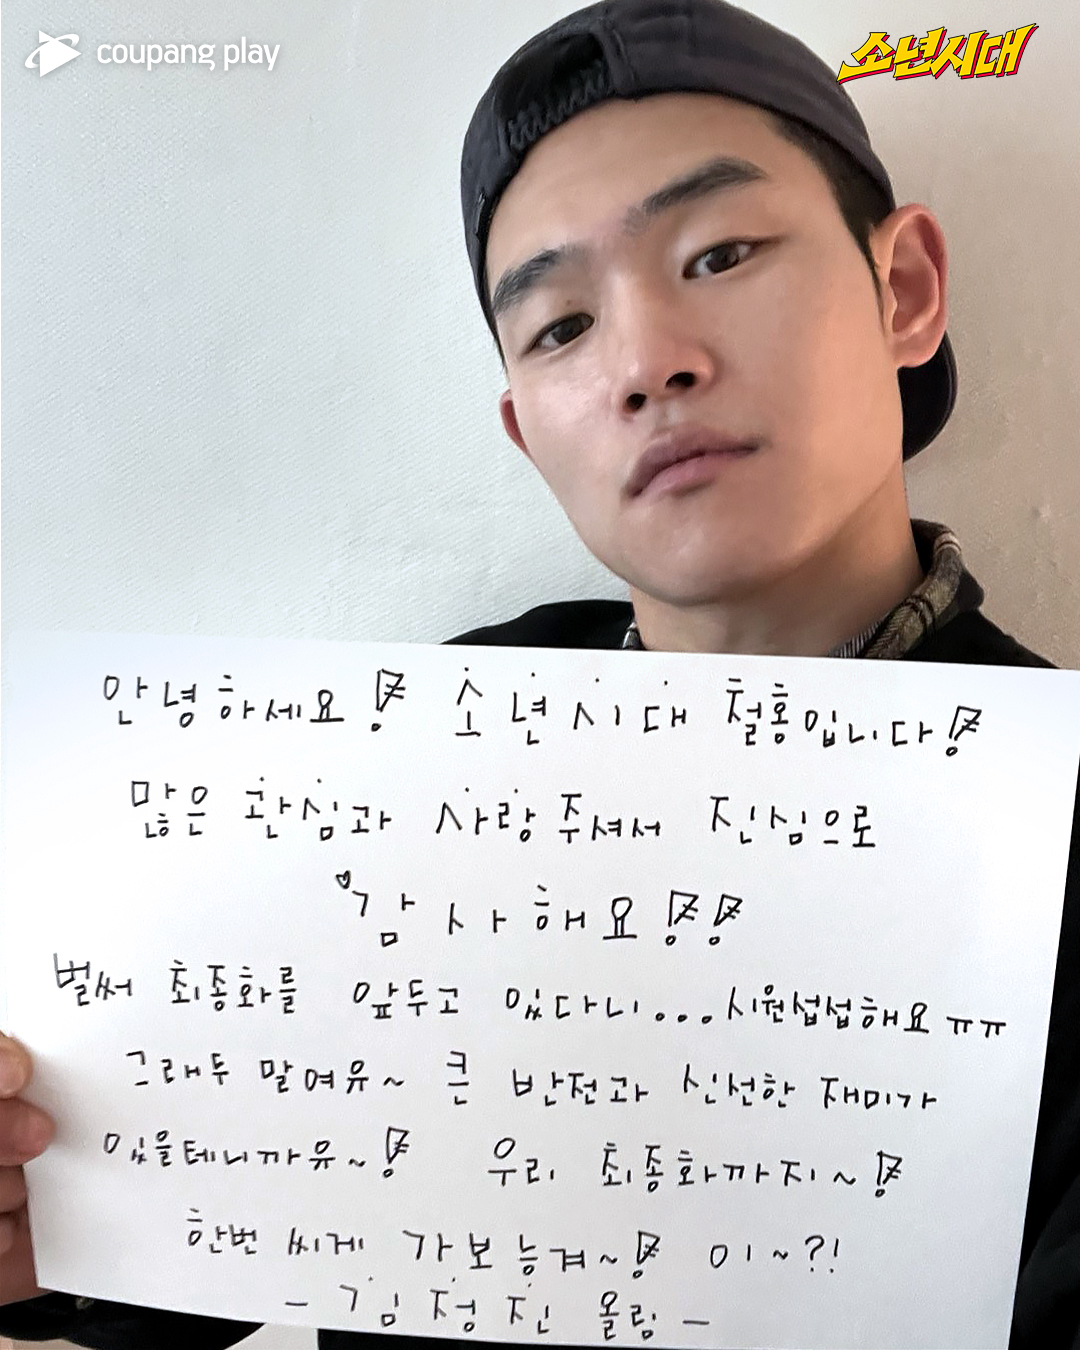 coupang play
소년시대
안녕하세요! 소년시대 철홍입니다!
많은 관심과 사랑 주셔서 진심으로
감사해요!!
벌써 최종화를 앞두고 있다니... 시원섭섭해요 ㅠㅠ
그래두 말여유~ 큰 반전과 신선한 재미가
있을테니까유~! 우리 최종화까지~!
한번 씨게 가보능겨~! 이~?!
- 김정진 올림 -